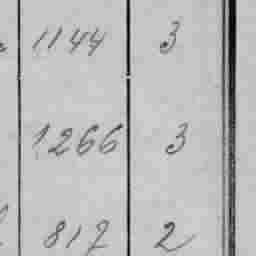 1144 3
1266 3
817 2